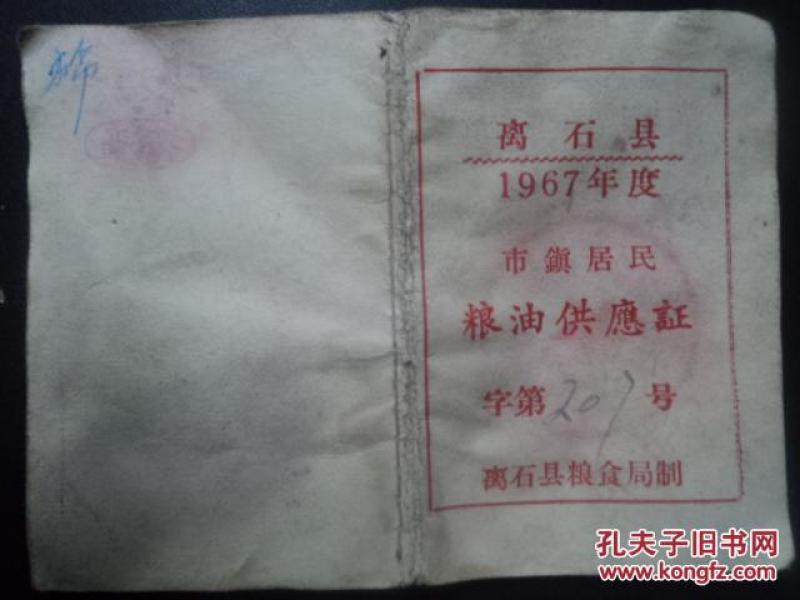 离石县
1967年度
市鎭居民
粮油供應証
字第207号
离石县粮食局制
孔夫子旧书网
www.kongfz.com